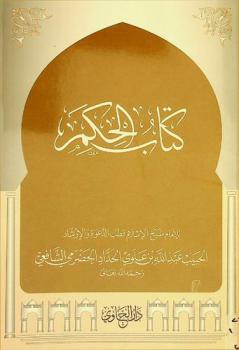 كتاب الحكم
للإمام شيخ الإسلام قطب الدعوة والإرشاد
الحبيب عبد الله بن علوي الحداد الحضرمي الشافعي
رحمه الله تعالى
دار الحاوي